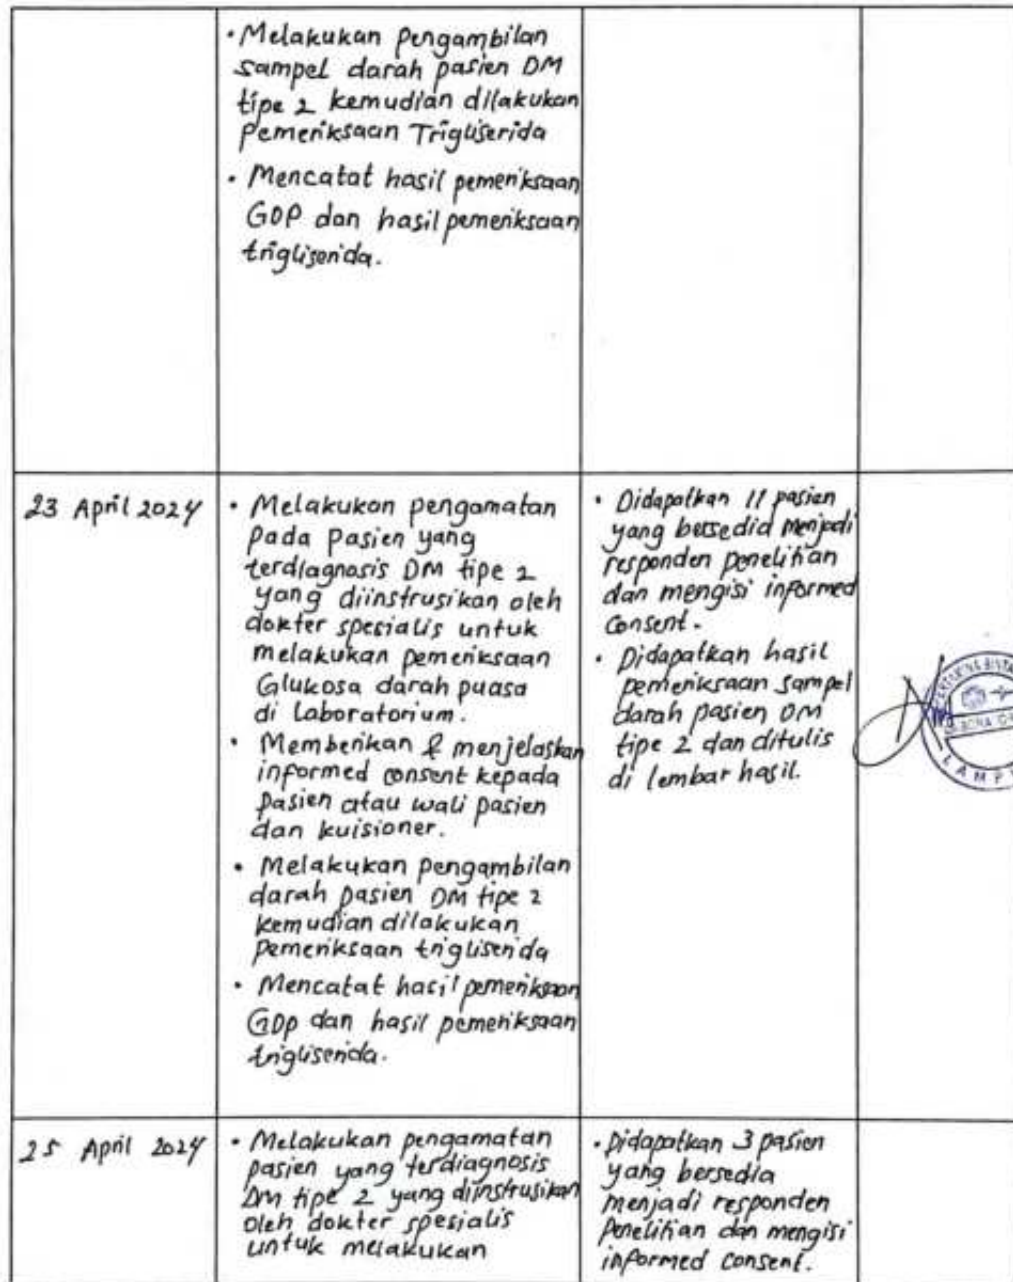 • Melakukan pengambilan
sampel darah pasien DM
tipe 2 kemudian dilakukan
Pemeriksaan Trigliserida
• Mencatat hasil pemeriksaan
GDP dan hasil pemeriksaan
trigliserida.
23 April 2024
• Melakukan pengamatan
pada pasien yang
terdiagnosis DM tipe 2
yang diinstrusikan oleh
dokter spesialis untuk
melakukan pemeriksaan
Glukosa darah puasa
di Laboratorium.
• Memberikan & menjelaskan
informed consent kepada
pasien atau wali pasien
dan kuisioner.
• Melakukan pengambilan
darah pasien DM tipe 2
kemudian dilakukan
pemeriksaan trigliserida
• Mencatat hasil pemeriksaan
GDP dan hasil pemeriksaan
trigliserida.
• Didapatkan 11 pasien
yang bersedia menjadi
responden penelitian
dan mengisi informed
consent.
• Didapatkan hasil
pemeriksaan sampel
darah pasien DM
tipe 2 dan ditulis
di lembar hasil.
LAMP
25 April 2024
• Melakukan pengamatan
pasien yang terdiagnosis
DM tipe 2 yang diinstrusikan
oleh dokter spesialis
untuk melakukan
• Didapatkan 3 pasien
yang bersedia
menjadi responden
penelitian dan mengisi
informed consent.